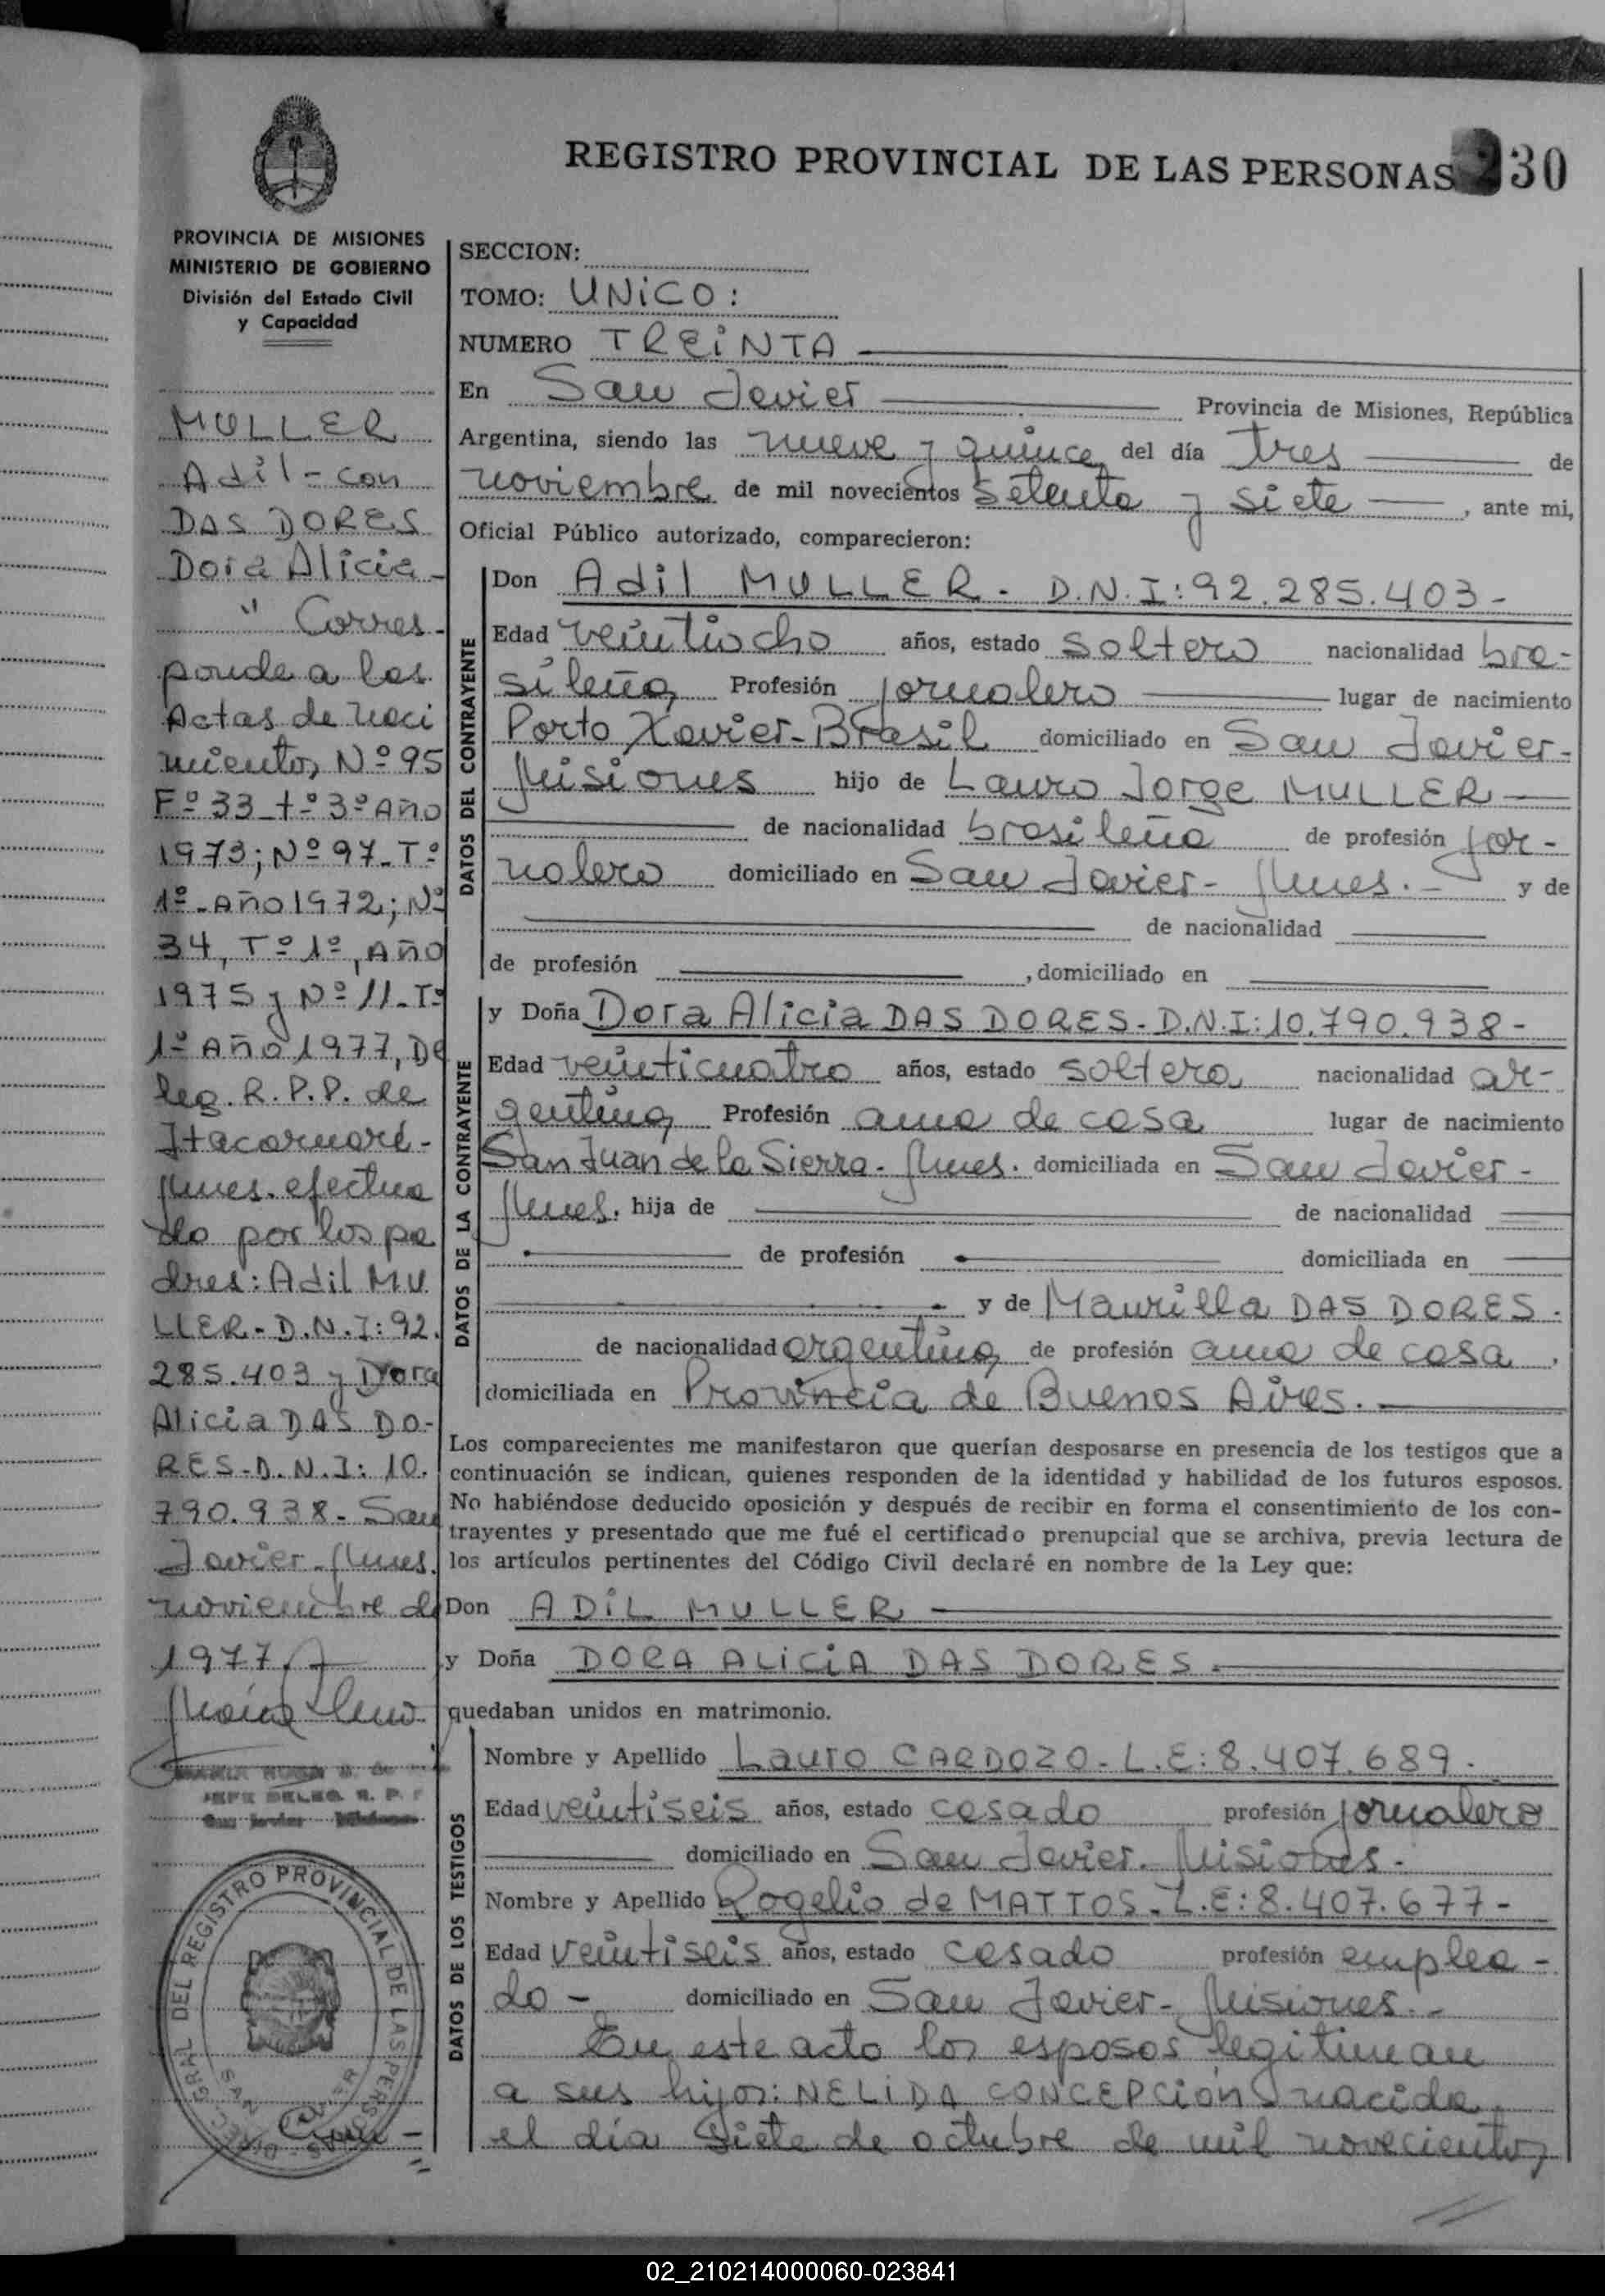 REGISTRO PROVINCIAL DE LAS PERSONAS 30
PROVINCIA DE MISIONES
MINISTERIO DE GOBIERNO
División del Estado Civil
y Capacidad
MULLER
Adil - con
DAS DORES
Dora Alicia -
" Corres-
ponde a las
Actas de naci
mientos Nº 95
Fº 33 - tº 3º Año
1973; Nº 97 - Tº
1º - Año 1972; Nº
34, Tº 1º, Año
1975 y Nº 11 - Tº
1º Año 1977, De
leg. R.P.P. de
Itacaruaré -
Mnes. efectua
do por los pa
dres: Adil MU
LLER - D.N.I: 92.
285.403 y Dora
Alicia DAS DO-
RES - D.N.I: 10.
790.938 - San
Javier - Mnes.
noviembre de
1977
JEFE DELEG. R. P. P
San Javier Misiones
DIREC. GRAL DEL REGISTRO PROVINCIAL DE LAS PERSONAS
SAN JAVIER
SECCION:
TOMO: UNiCO:
NUMERO TREiNTA
En San Javier Provincia de Misiones, República
Argentina, siendo las nueve y quince del día tres de
noviembre de mil novecientos setenta y siete , ante mi,
Oficial Público autorizado, comparecieron:
DATOS DEL CONTRAYENTE
Don Adil MULLER - D.N.I: 92.285.403 -
Edad veintiocho años, estado soltero nacionalidad bra-
sileña Profesión jornalero lugar de nacimiento
Porto Xavier - Brasil domiciliado en San Javier -
Misiones hijo de Lauro Jorge MULLER
de nacionalidad brasileña de profesión jor-
nalero domiciliado en San Javier - Mnes. - y de
de nacionalidad
de profesión , domiciliado en
DATOS DE LA CONTRAYENTE
y Doña Dora Alicia DAS DORES - D.N.I: 10.790.938 -
Edad veinticuatro años, estado soltera nacionalidad ar-
gentina Profesión ama de casa lugar de nacimiento
San Juan de la Sierra - Mnes. domiciliada en San Javier -
Mnes. hija de de nacionalidad
de profesión domiciliada en
y de Maurilla DAS DORES.
de nacionalidad argentina de profesión ama de casa,
domiciliada en Provincia de Buenos Aires.
Los comparecientes me manifestaron que querían desposarse en presencia de los testigos que a
continuación se indican, quienes responden de la identidad y habilidad de los futuros esposos.
No habiéndose deducido oposición y después de recibir en forma el consentimiento de los con-
trayentes y presentado que me fué el certificado prenupcial que se archiva, previa lectura de
los artículos pertinentes del Código Civil declaré en nombre de la Ley que:
Don ADiL MULLER
y Doña DORA ALiCiA DAS DORES.
quedaban unidos en matrimonio.
DATOS DE LOS TESTIGOS
Nombre y Apellido Lauro CARDOZO - L.E: 8.407.689.
Edad veintiseis años, estado casado profesión jornalero
domiciliado en San Javier. Misiones -
Nombre y Apellido Rogelio de MATTOS - L.E: 8.407.677 -
Edad veintiseis años, estado casado profesión emplea-
do - domiciliado en San Javier - Misiones. -
En este acto los esposos legitiman
a sus hijos: NELiDA CONCEPCiON nacida
el día siete de octubre de mil novecientos
02_210214000060-023841